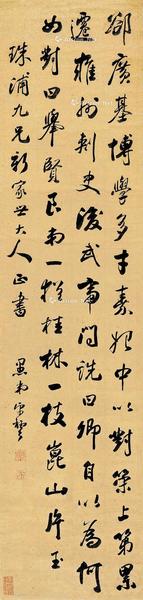 郤廣基博學多才泰始中以對策上第累
遷雍州刺史後武帝問詵曰卿自以為何
如對曰舉賢良一猶桂林一枝崑山片玉
珠浦九兄大人正書